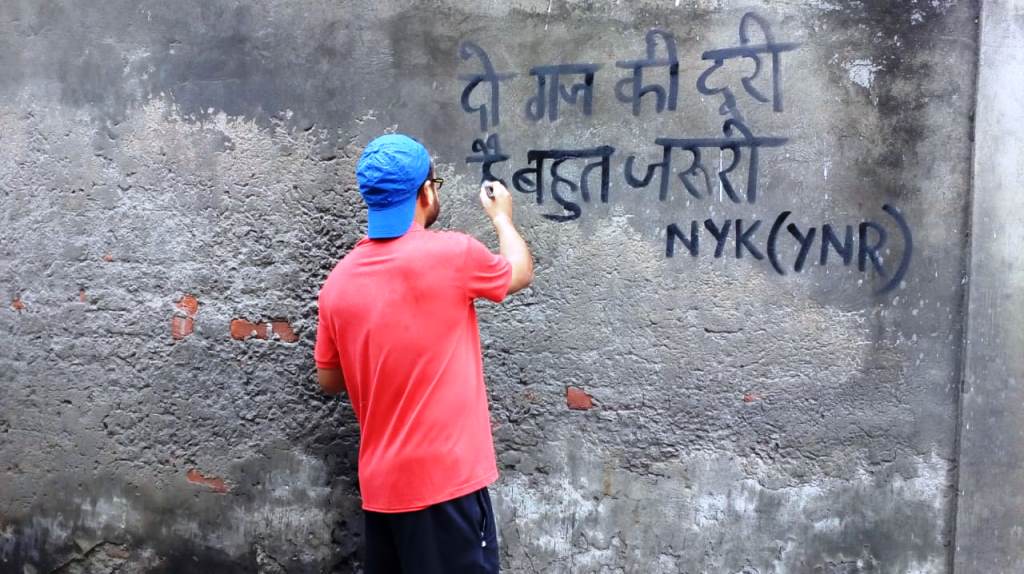 दो गज की दूरी
है बहुत जरूरी
NYK(YNR)